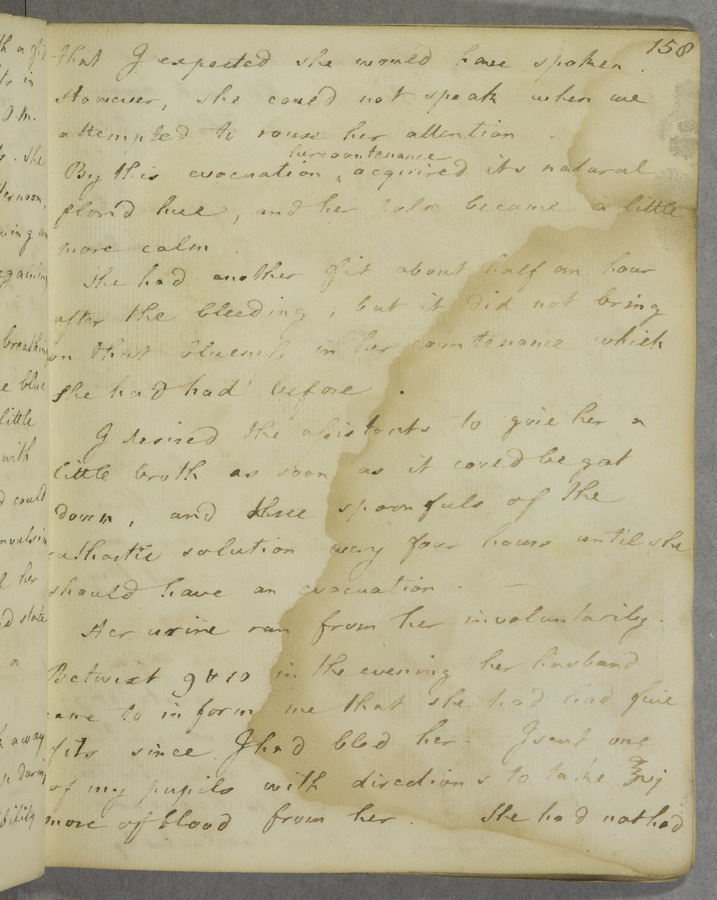 158
that I expected she would have spoken.
However, she could not speak when we
attempted to rouse her attention.
her countenance
By this evacuation ‸ acquired its natural
florid hue, and her pulse became a little
more calm.
She had another fit about half an hour
after the bleeding; but it did not bring
on that blueness in her countenance which
she had had before.
I desired the assistants to give her a
little broth as soon as it could be got
down, and three spoonfuls of the
cathartic solution every four hours until she
should have an evacuation.
Her urine ran from her involuntarily.
Betwixt 9 & 10 in the evening her husband
came to inform me that she had had five
fits since I had bled her. I sent one
of my pupils with directions to take ℥vj
more of blood from her. She had not had